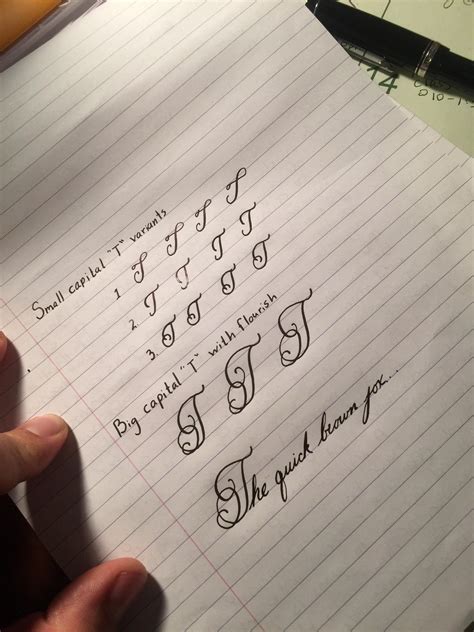 Small capital "T" variants
1 T T T T
2. T T T T
3. T T T T
Big capital "T" with flourish
T T T
The quick brown fox...
14